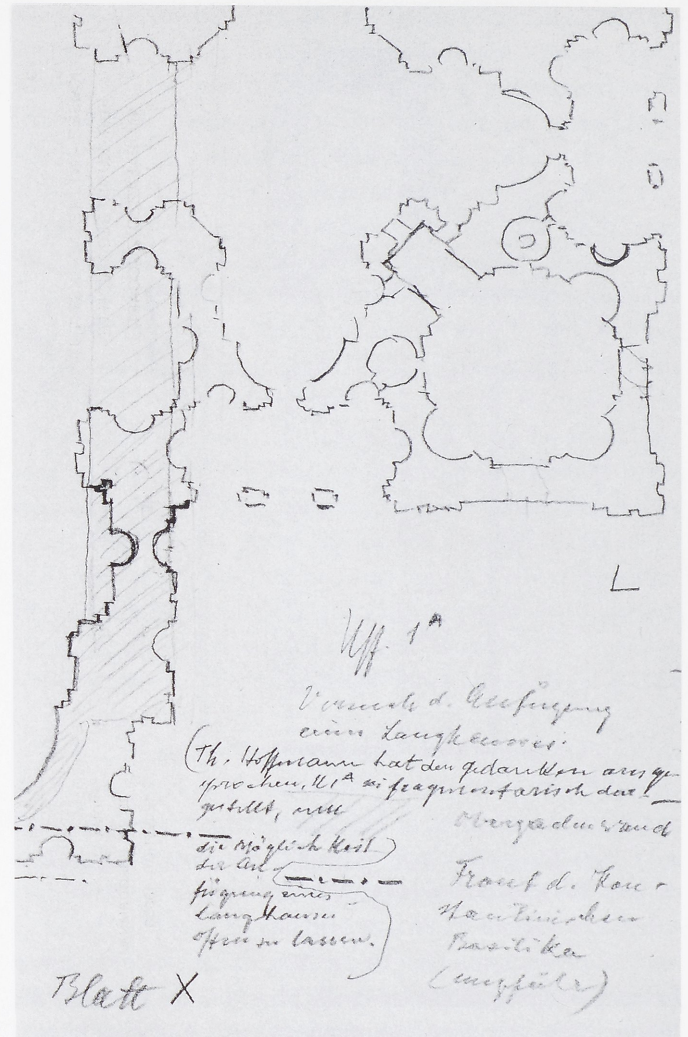 Uff. 1^A
Versuch d. Anfügung
eines Langhauses.
(Th. Hoffmann hat den Gedanken ausge-
sprochen, U1^A sei fragmentarisch dar-
gestellt, um
Obergadenwand
die Möglichkeit
der An-
fügung eines
Langhauses
offen zu lassen.
Front d. Kon-
stantinischen
Basilika
(ungefähr)
Blatt X